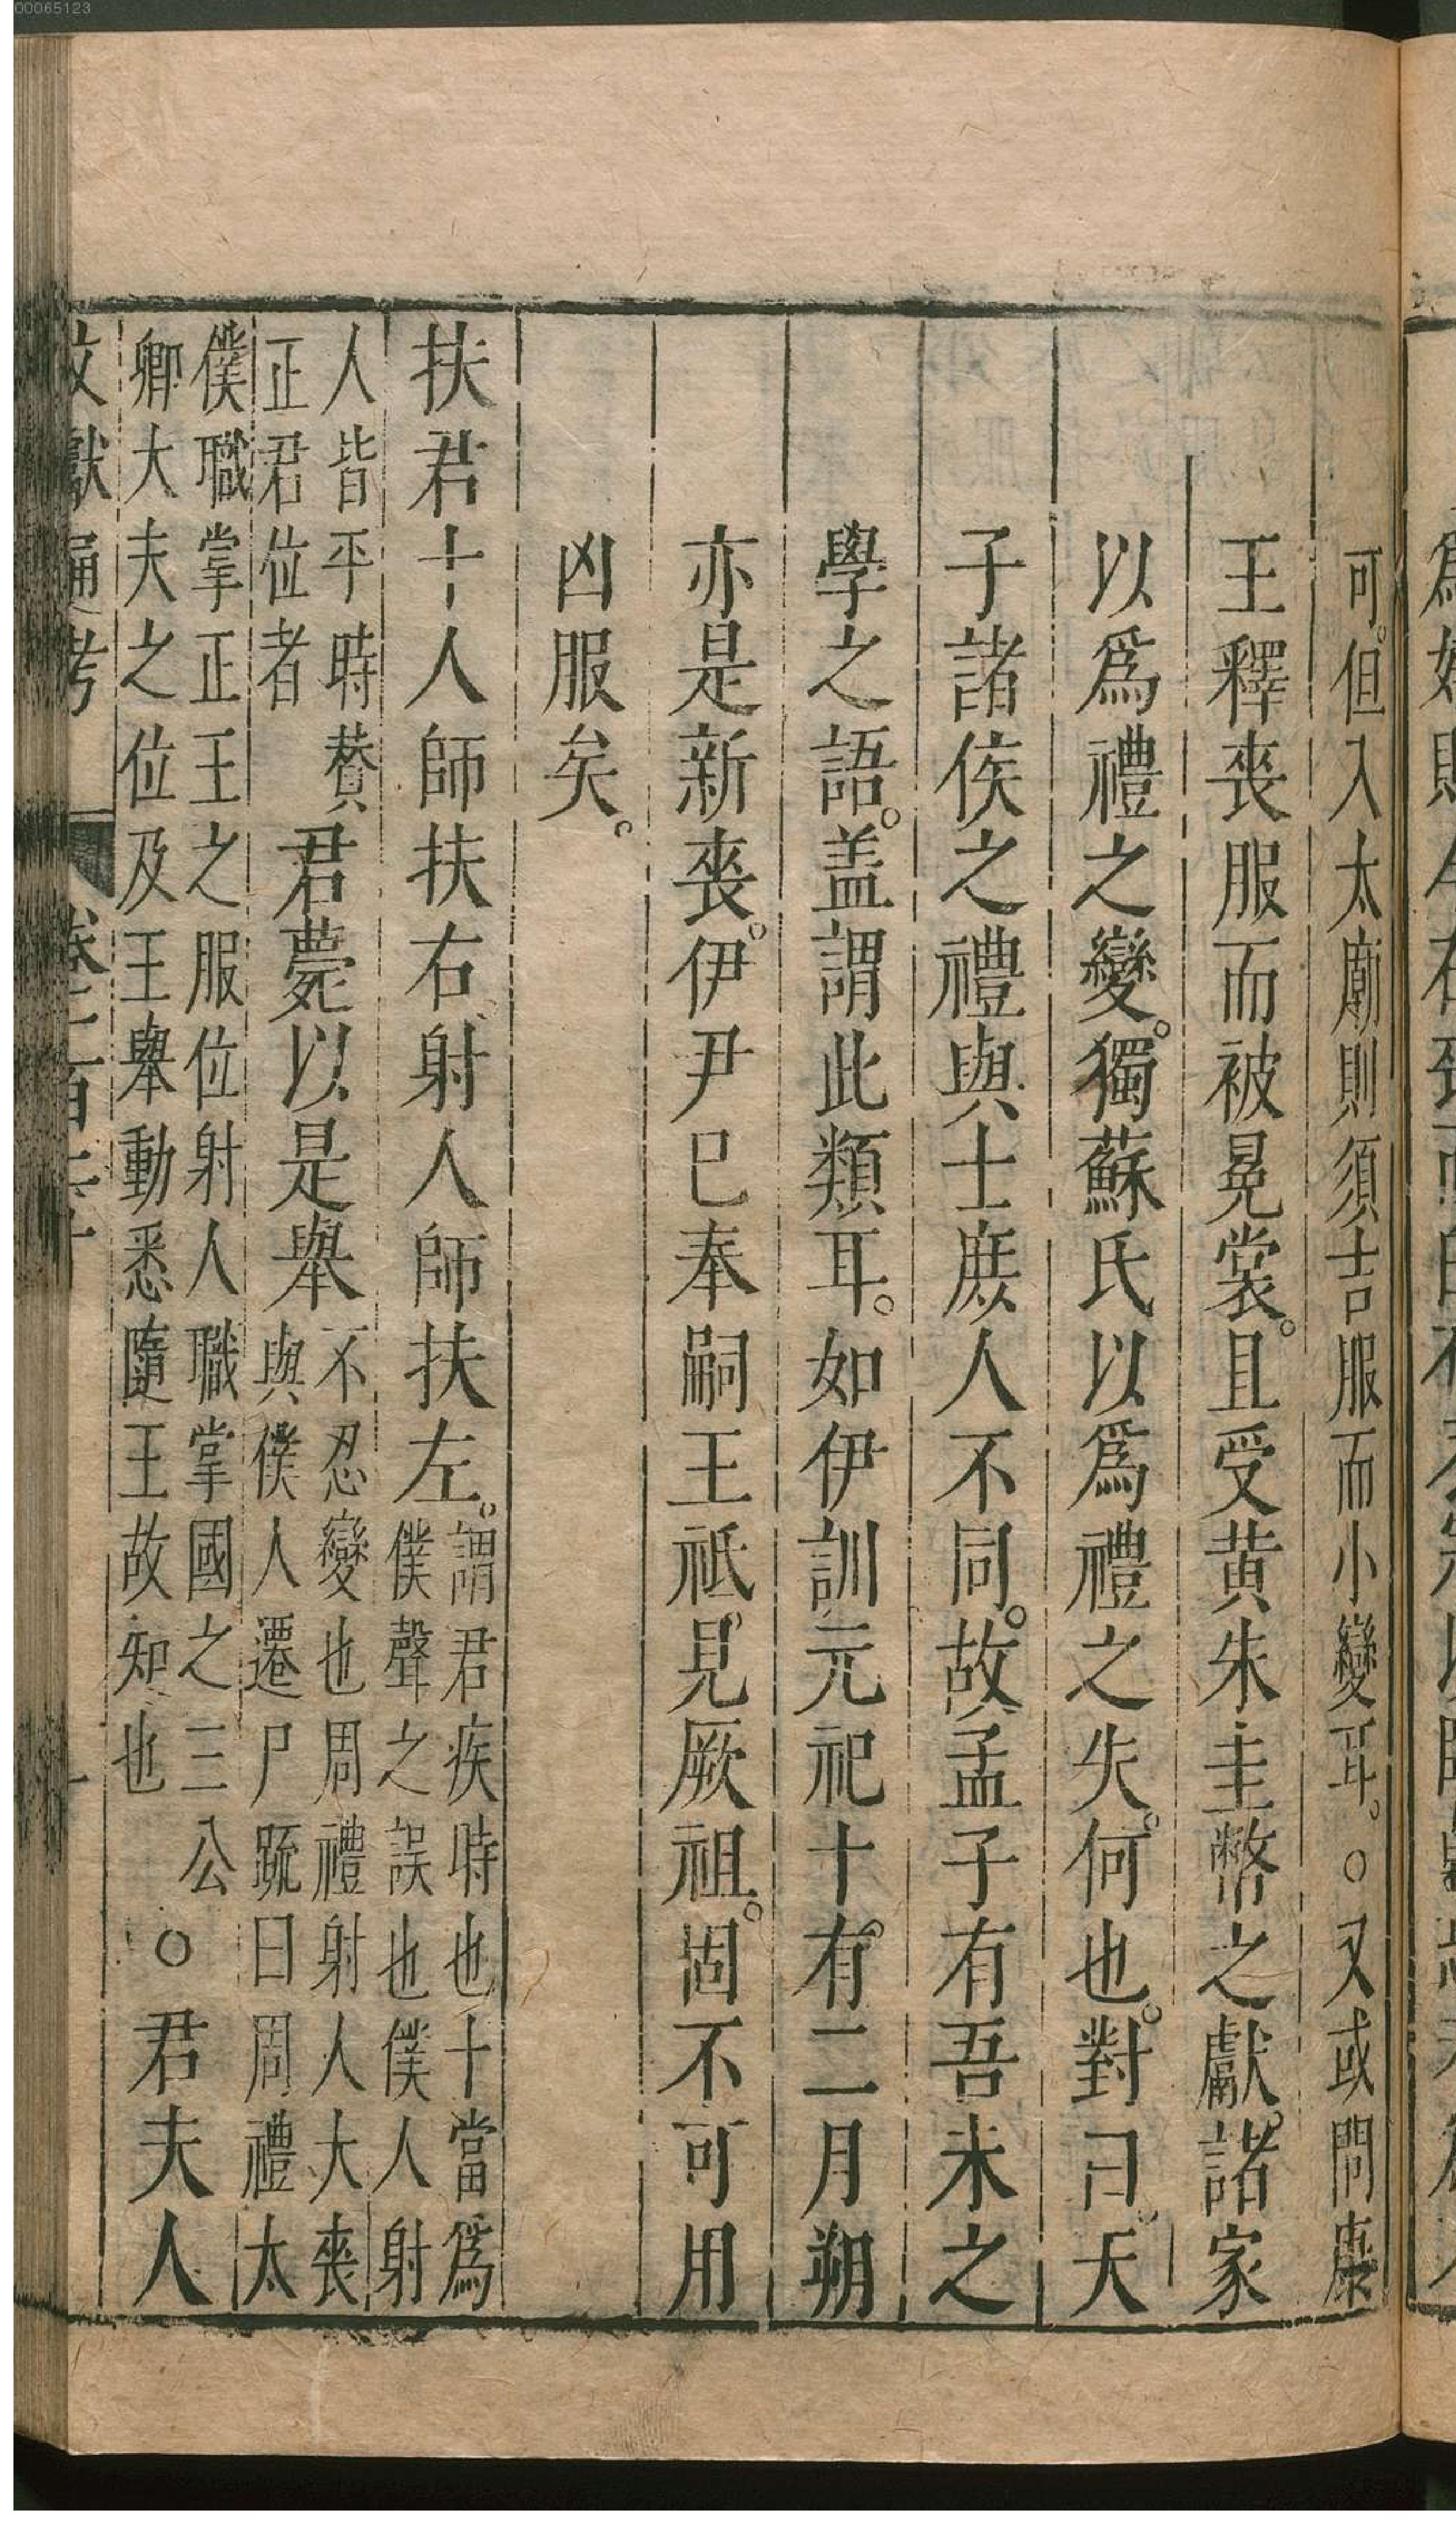 00065123
可。但入太廟則須吉服而小變耳。○又或問康
王釋喪服而被冕裳。且受黄朱圭幣之獻。諸家
以爲禮之變。獨蘇氏以爲禮之失。何也。對曰。天
子諸侯之禮與士庻人不同。故孟子有吾未之
學之語。盖謂此類耳。如伊訓元祀十有二月朔
亦是新喪。伊尹巳奉嗣王祗見厥祖。固不可用
凶服矣。
扶君十人師扶右、射人師扶左。謂君疾時也十當爲
僕聲之誤也僕人射
人皆平時賛
正君位者
君薨以是舉
不忍變也周禮射人大喪
與僕人遷尸䟽曰周禮太
僕職掌正王之服位射人職掌國之三公
卿大夫之位及王舉動悉隨王故知也
○君夫人
文獻通考